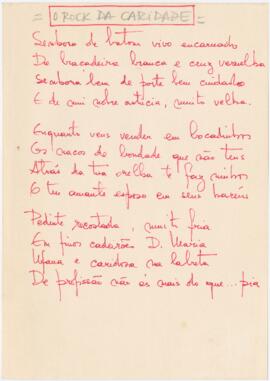 = O ROCK DA CARIDADE =
Senhora de batom vivo encarnado
De braçadeira branca e cruz vermelha
Senhora bem de porte bem cuidado
E de mui nobre astúcia, muito velha.
Enquanto vens vender em bocadinhos
Os cacos de bondade que não tens
Atrás da tua orelha te faz ninhos
O teu amante esposo em seus haréns
Pedinte recostada, muito fria
Em finos cadeirões D. Maria
Ufana e caridosa na labuta
De profissão não és mais do que... pia